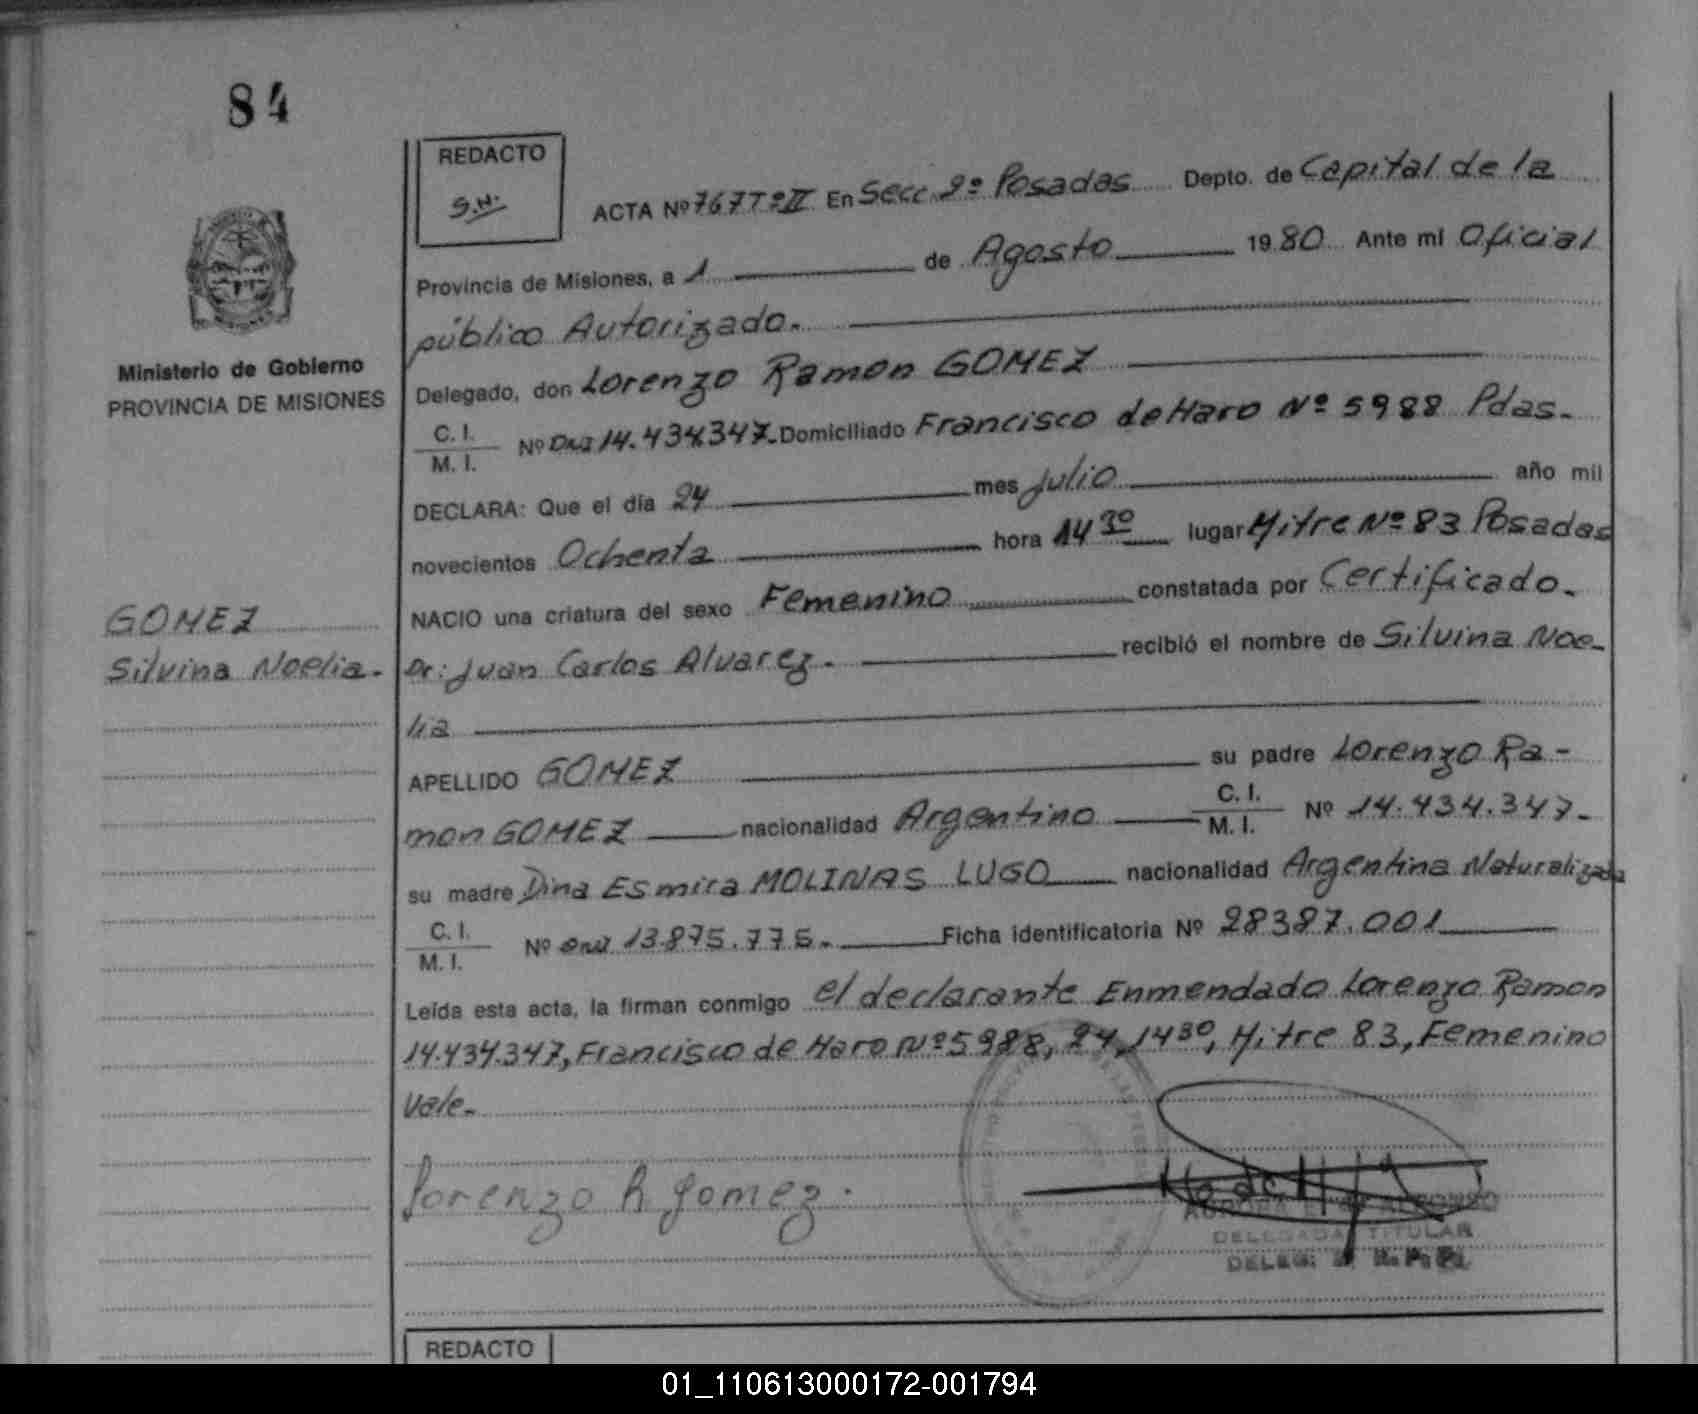 84
REDACTO
S.N.
ACTA Nº 767 Tº II En Secc. 2º Posadas Depto. de Capital de la
Provincia de Misiones, a 1 de Agosto 1980 Ante mi Oficial
público Autorizado.
Ministerio de Gobierno
PROVINCIA DE MISIONES
Delegado, don Lorenzo Ramon GOMEZ
C. I.
M. I. Nº DNI 14.434.347. Domiciliado Francisco de Haro Nº 5988 Pdas.
DECLARA: Que el día 24 mes Julio año mil
novecientos Ochenta hora 14 30 lugar Mitre Nº 83 Posadas
NACIO una criatura del sexo Femenino constatada por Certificado.
GOMEZ
Silvina Noelia.
Dr: Juan Carlos Alvarez. recibió el nombre de Silvina Noe-
lia
APELLIDO GOMEZ su padre Lorenzo Ra-
mon GOMEZ nacionalidad Argentino C. I.
M. I. Nº 14.434.347.
su madre Dina Esmira MOLINAS LUGO nacionalidad Argentina Naturalizada
C. I.
M. I. Nº DNI 13.875.775. Ficha identificatoria Nº 28387.001
Leída esta acta, la firman conmigo el declarante Enmendado Lorenzo Ramon
14.434.347, Francisco de Haro Nº 5988, 24, 14 30, Mitre 83, Femenino
Vale.
Lorenzo R Gomez.
DELEGADA TITULAR
REDACTO
01_110613000172-001794